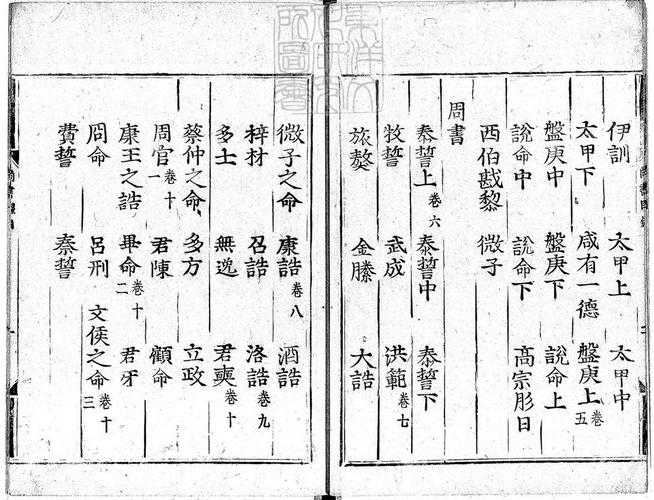 伊訓 太甲上 太甲中
太甲下 咸有一德 盤庚上 卷五
盤庚中 盤庚下 說命上
說命中 說命下 高宗肜日
西伯戡黎 微子
周書
泰誓上 卷六 泰誓中 泰誓下
牧誓 武成 洪範 卷七
旅獒 金縢 大誥
微子之命 康誥 卷八 酒誥
梓材 召誥 洛誥 卷九
多士 無逸 君奭 卷十
蔡仲之命 多方 立政
周官 卷十一 君陳 顧命
康王之誥 畢命 卷十二 君牙
冏命 呂刑 文侯之命 卷十三
費誓 秦誓